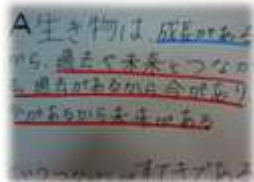 A生き物は、成長がある
から、過去や未来とつなが
る。過去があるから今があり
今があるから未来がある